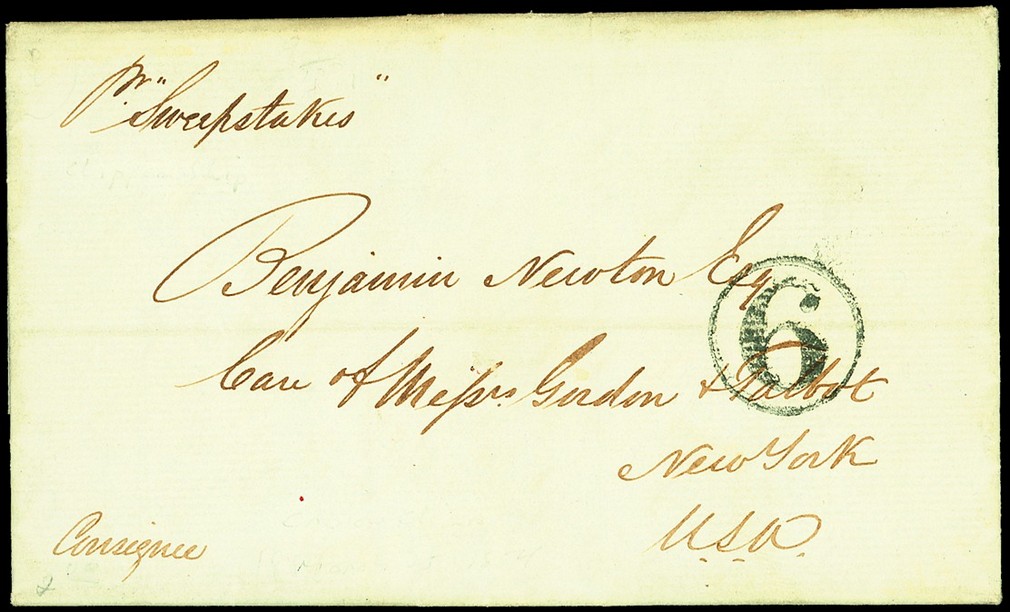 pr. "Sweepstakes"
Benjamin Newton Esq
6
Care of Messrs Gordon & Talbot
New York
U.S.A.
Consignee